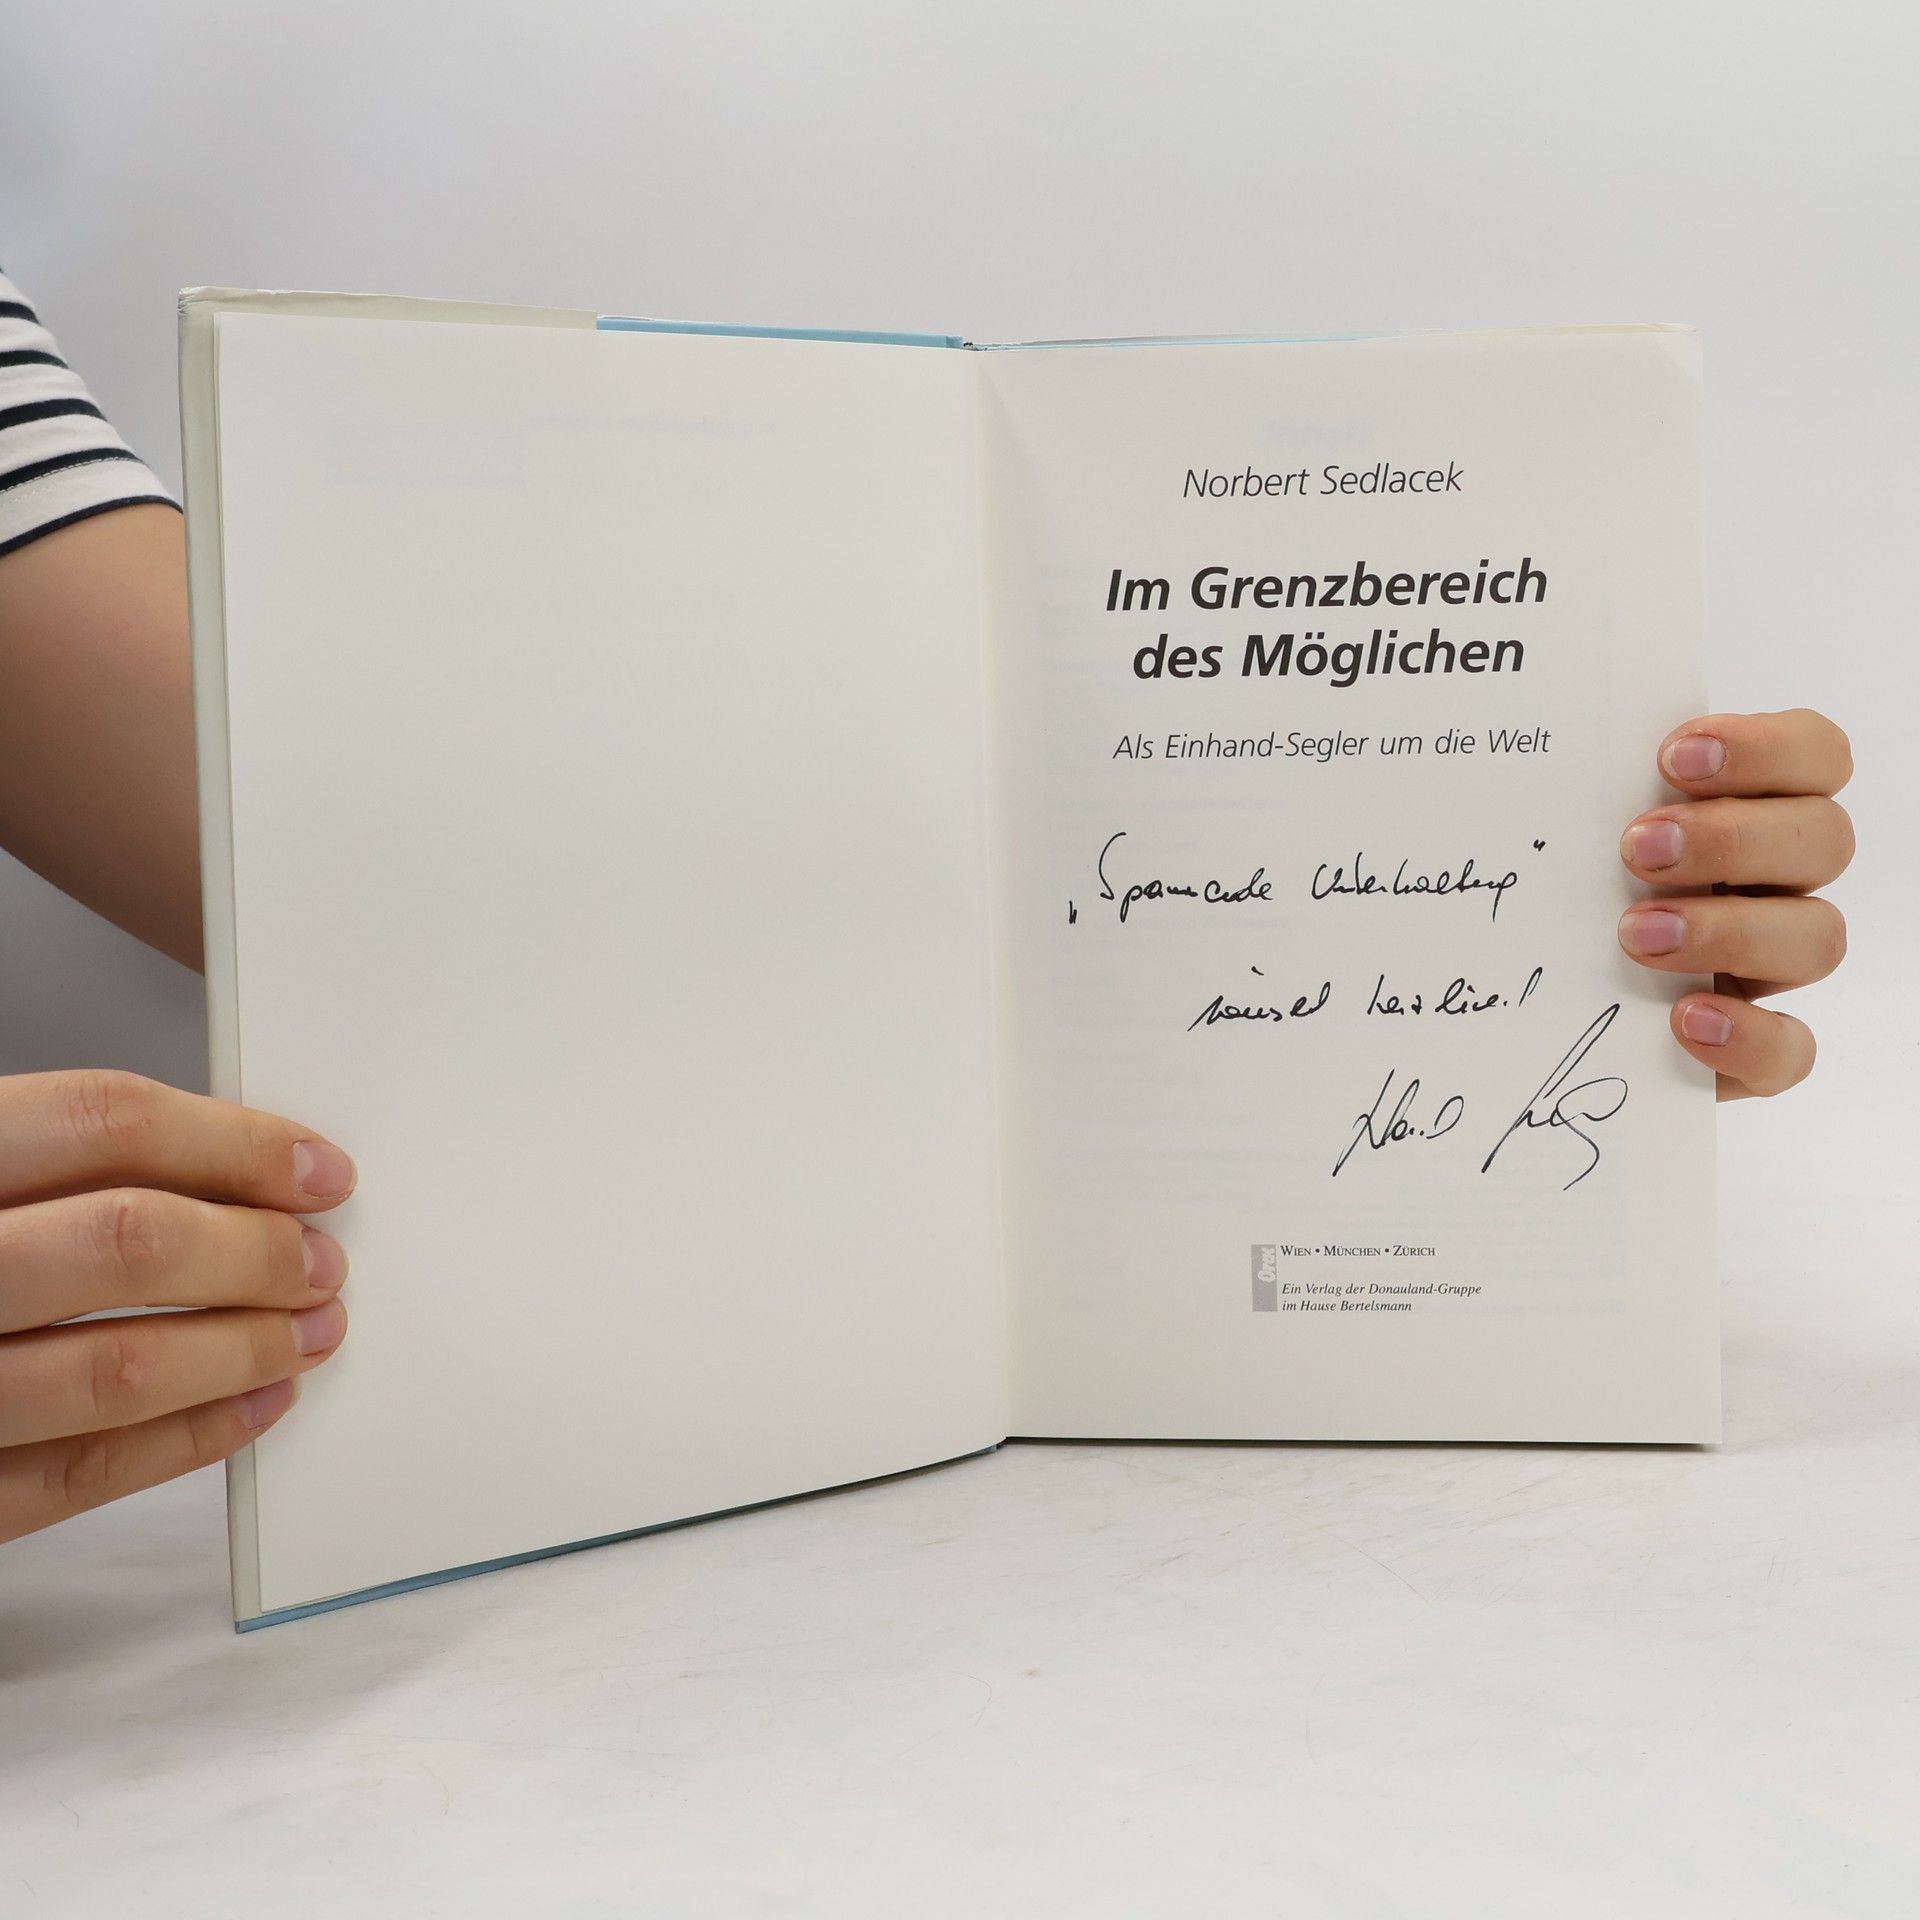 Norbert Sedlacek
Im Grenzbereich
des Möglichen
Als Einhand-Segler um die Welt
„Spannende Unterhaltung“
wünscht herzlichst
Orac
WIEN • MÜNCHEN • ZÜRICH
Ein Verlag der Donauland-Gruppe
im Hause Bertelsmann